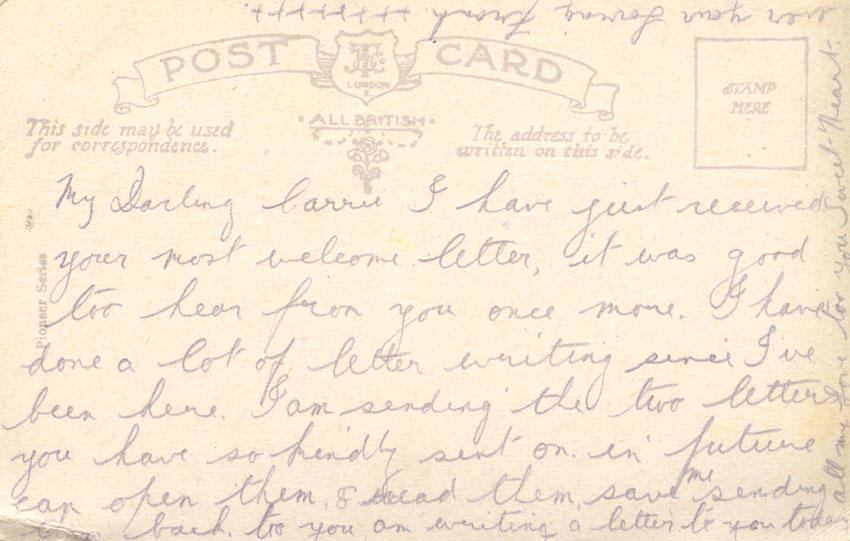 POST CARD
LONDON
ALL BRITISH
This side may be used
for correspondence.
The address to be
written on this side.
STAMP
HERE
Pioneer Series
My Darling Carrie I have just received
your most welcome letter, it was good
too hear from you once more. I have
done a lot of letter writing since I've
been here. I am sending the two letters
you have so kindly sent on. in future
can open them, & read them, save me sending
back, to you am writing a letter to you today
all my love too you Sweet-Heart.
ever your loving Frank ++++++++.